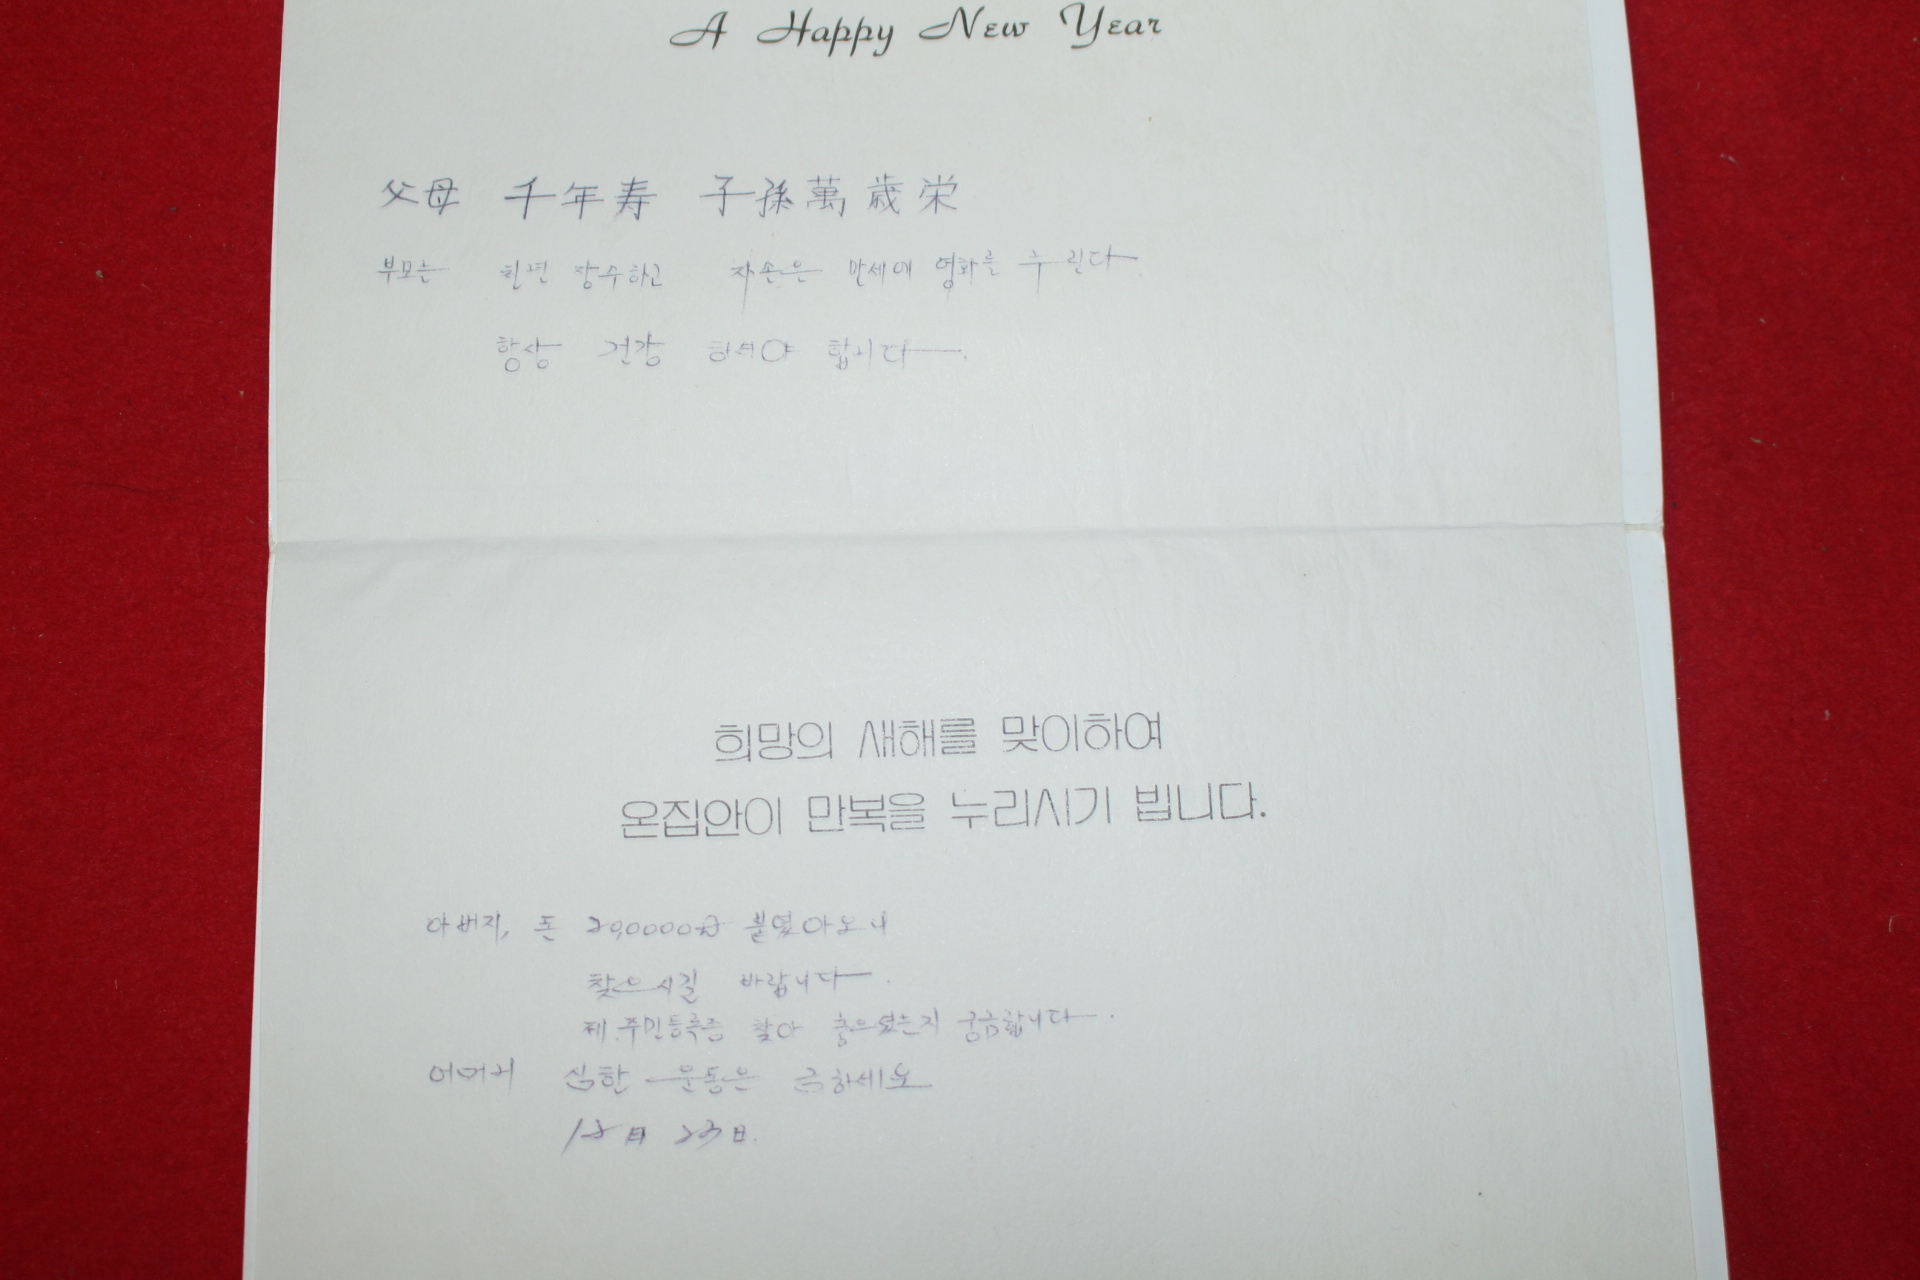 A Happy New Year
父母 千年寿 子孫萬歳栄
부모는 천년 장수하고 자손은 만세에 영화를 누린다.
항상 건강 하셔야 합니다.
희망의 새해를 맞이하여
온집안이 만복을 누리시기 빕니다.
아버지, 돈 20,0000 아오니
찾으시길 바랍니다.
제 주민등록증 찾아 궁금합니다.
어머니 심한 운동은 금하세요
12月 23日.